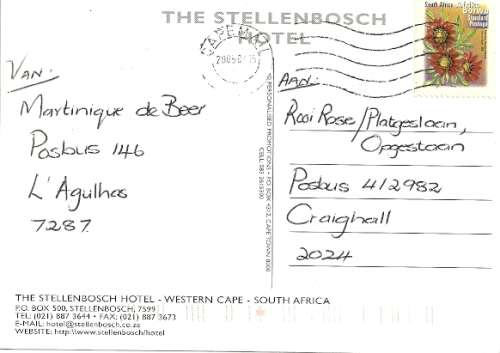 THE STELLENBOSCH
HOTEL
CAPE MAIL
South Africa
Standard
Postage
VAN:
Martinique de Beer
Posbus 146
L'Agulhas
7287
AAN:
Rooi Rose/Platgeslaan,
Opgestaan
Posbus 412982
Craighall
2024
PERSONALISED PROMOTIONS • PO BOX 4352, CAPE TOWN 8000
THE STELLENBOSCH HOTEL - WESTERN CAPE - SOUTH AFRICA
P.O. BOX 500, STELLENBOSCH, 7599
TEL: (021) 887 3644 • FAX: (021) 887 3673
E-MAIL: hotel@stellenbosch.co.za
WEBSITE: http://www.stellenbosch/hotel